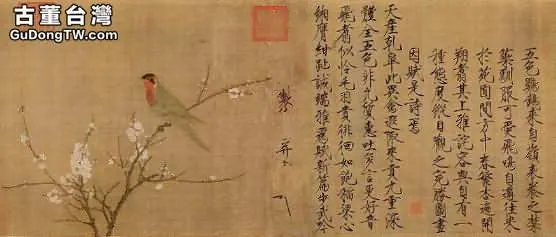 古董台灣
GuDongTW.com
五色鸚鵡来自嶺表養之禁
籞馴服可愛飛鳴自適往来
於苑囿間方中春繁杏遍開
翔翥其上雅詫容與自有一
種態度縱目觀之宛勝圖畫
因賦是詩焉
天産乾皐此異禽遐陬来貢九重深
體全五色非凡質惠吐多言更好音
飛翥似怜毛羽貴徘徊如飽稻粱心
緗膺紺趾誠端雅爲賦新篇步武吟
製